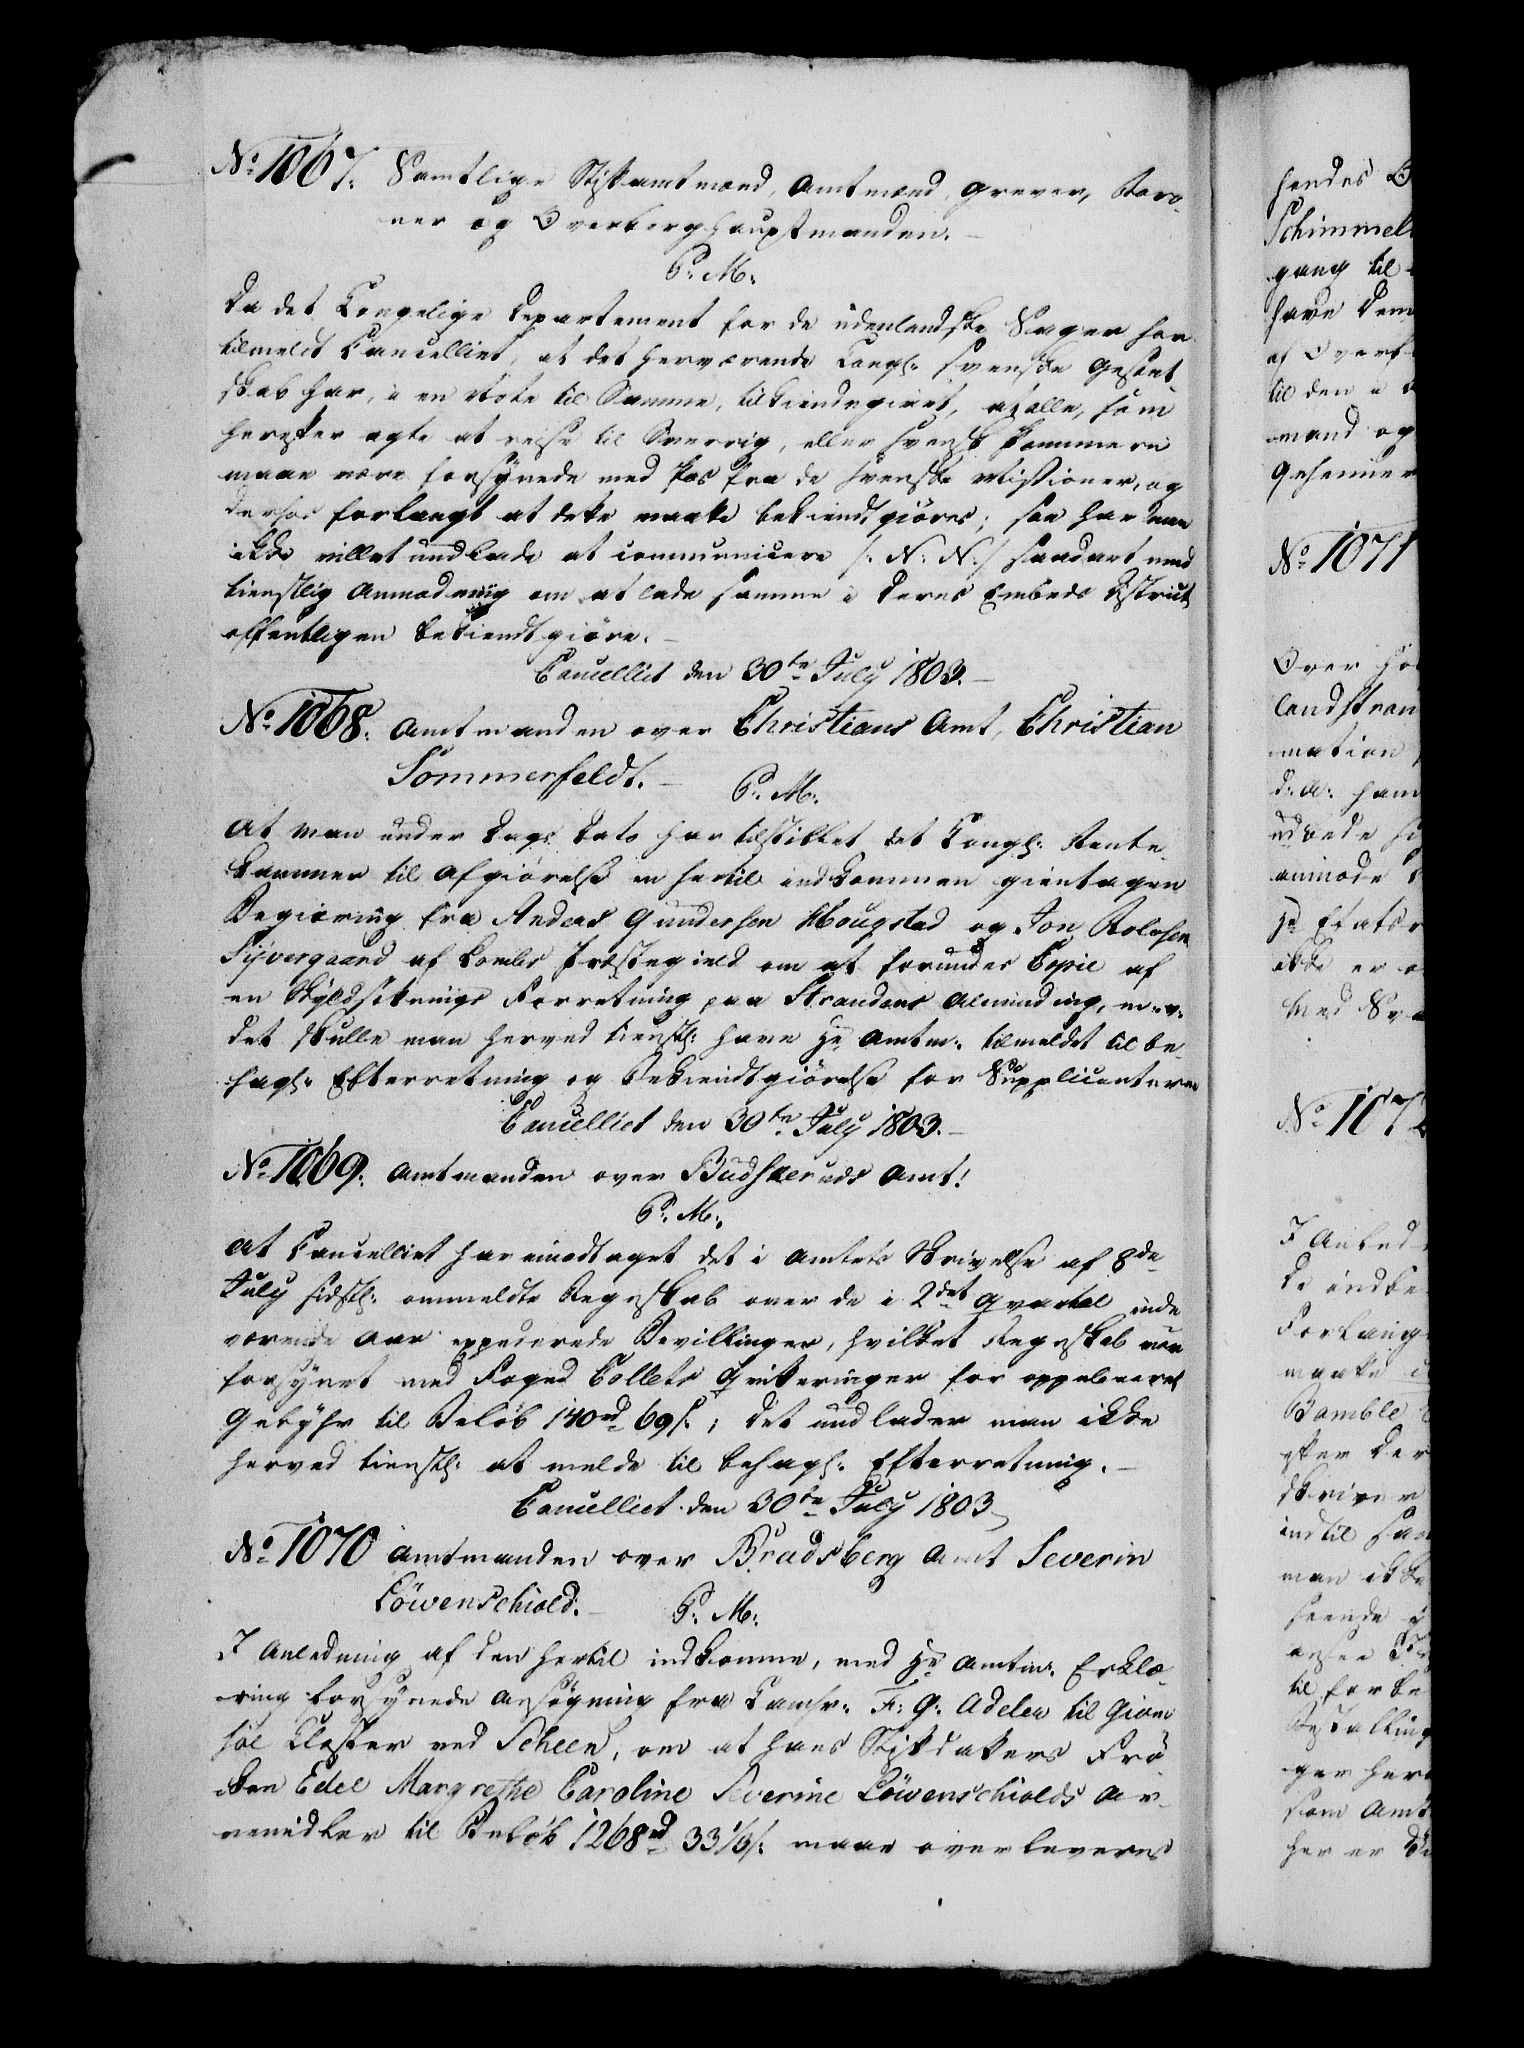 No 1067. Samtlige Stiftamtmænd, Amtmænd, Grever, Baro-
ner og Overberghauptmanden.
P. M.
Da det Kongelige Departement for de udenlandske Sager har
tilmeldt Cancelliet, at det herværende Kongl: svenske Gesant-
skab har, i en Note til Samme, tilkiendegivet, at alle, som
herefter agte at reise til Sverrig, eller svensk Pommern
maae være forsynede med Pas fra de svenske Missioner, og
derhos forlangt at dette maatte bekiendtgiöres; saa har man
ikke villet undlade at communicere /: N: N: / saadant med
tienstlig Anmodning om at lade samme i Deres Embeds District
offentligen bekiendtgiöre.
Cancelliet den 30te July 1803.
No 1068. Amtmanden over Christians Amt, Christian
Sommerfeldt.
P. M.
At man under Dags Dato har tilstillet det Kongl: Rente-
kammer til Afgiörelse en hertil indkommen gientagen
Begiæring fra Anders Gundersen Hougstad og Jon Rolvsen
Sÿvergaard af Lomb Præstegield om at forundes Copie af
en Skyldsetnings Forretning paa Strandens Alminding, m: v:
det skulle man herved tienstl: have Hr Amtm: tilmeldet til be-
hagl: Efterretning og Bekiendtgiörelse for Supplicanterne
Cancelliet den 30te July 1803.
No 1069. Amtmanden over Budskeruds Amt!
P. M.
At Cancelliet har imodtaget det i Amtets Skrivelse af 8de
July sidstl: ommeldte Regnskab over de i 2det Qvartal inde
værende Aar expederede Bevillinger, hvilket Regnskab var
forsynet med Foged Collets Qvitteringer for oppebaaret
Gebyhr til Belöb 140rd 69 s; det undlader man ikke
herved tienstl: at melde til behagl: Efterretning.
Cancelliet den 30te July 1803
No 1070 Amtmanden over Bradsberg Amt Severin
Löwenschiold.
P. M.
I Anledning af den hertil indkomne, med Hr Amtm: Erklæ-
ring forsynede Ansögning fra Camhr: F: G: Adeler til Giem
söe Kloster ved Scheen, om at hans Stifdatters Frö
ken Edel Margrethe Caroline Severine Löwenschiolds Ar-
vemidler til Belöb 1268rd 33 1/3 s: maae overleveres
hendes
Schimmel
gang til
have Dem
af Overf
til den i
mand og
Geheimer
No 1071
Over
landstran
mation
d: A: ham
udbede sig
anmode
Hr Etatsr
ikke er
Med Sva
No 1072
I Anled
de indbe
Forlang
maatte
Bamble
efter Der
skriver
indtil saa
man ikke
seende
til forbe
Bestalling
ger her
som Amt
her er